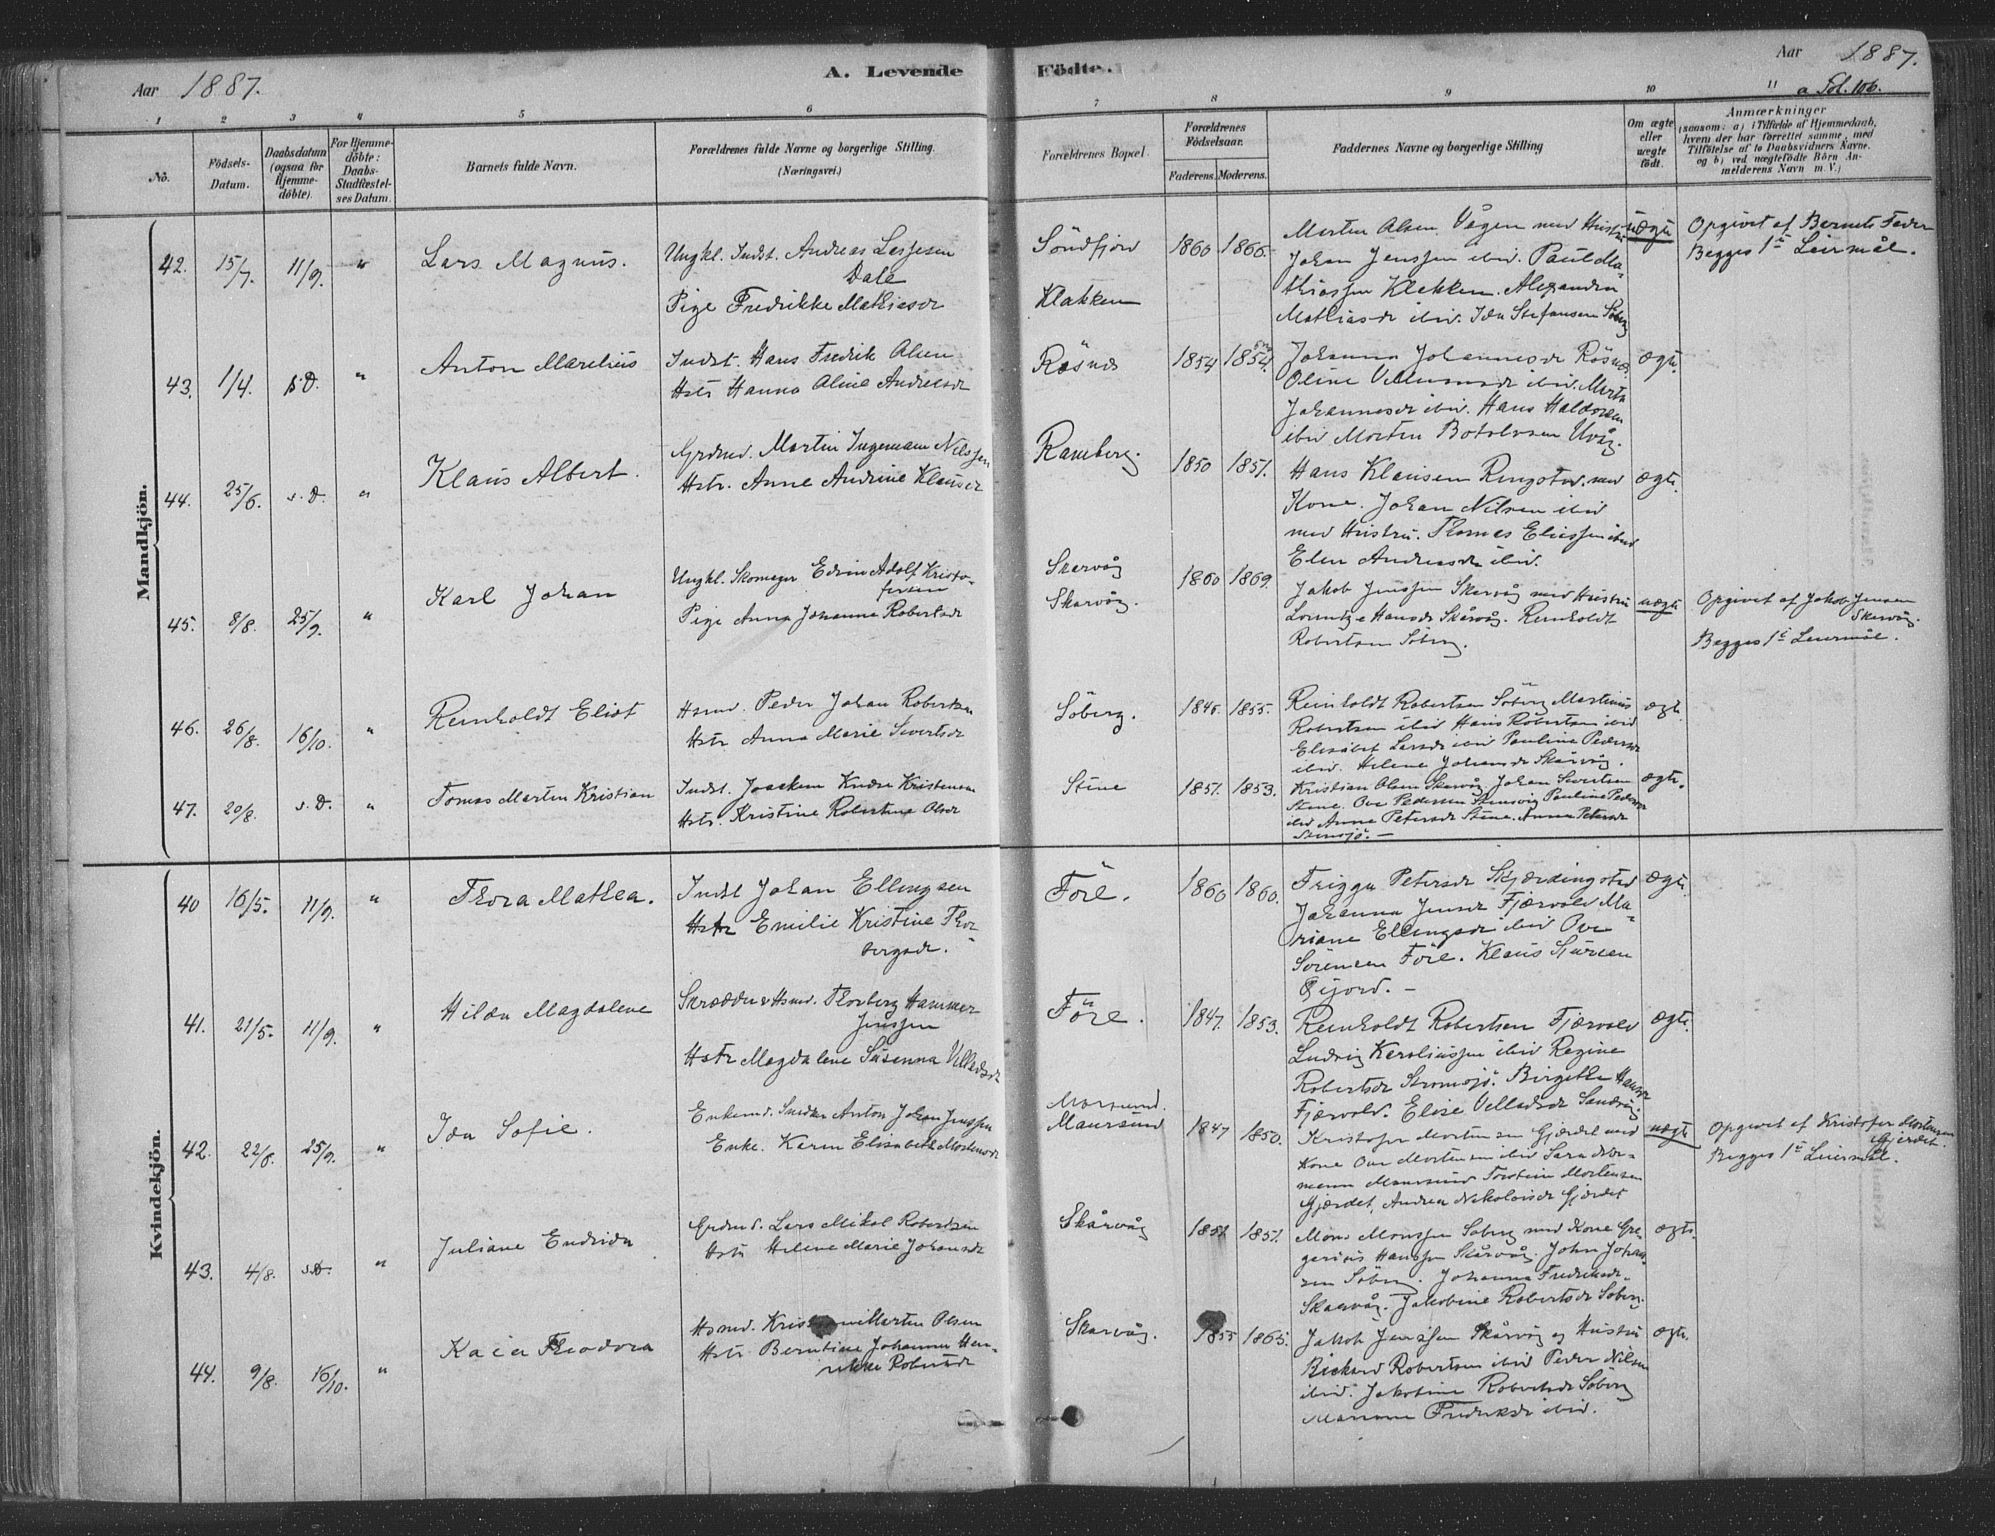 Aar 1887.
A. Levende Födte.
Aar 1887.
a Fol. 106.
1 2 3 4 5 6 7 8 9 10 11
No.
Födsels-Datum.
Daabsdatum (ogsaa for Hjemme-döbte).
For Hjemme-döbte: Daabs-Stadfæstel-ses Datum.
Barnets fulde Navn.
Forældrenes fulde Navne og borgerlige Stilling. (Næringsvei.)
Forældrenes Bopæl.
Forældrenes Födselsaar.
Faderens. Moderens.
Faddernes Navne og borgerlige Stilling
Om ægte eller uægte födt.
Anmærkninger (saasom: a) i Tilfælde af Hjemmedaab, hvem der har forrettet samme, med Tilföielse af to Daabsvidners Navne. og b) ved uægtefödte Börn An-melderens Navn m. V.)
Mandkjön.
42. 15/7. 11/9. " Lars Magnus.
Ungkl. Indst. Andreas Lassesen
Dale
Pige Fredrikke Mathiasdr
Söndfjord
Klakken
1860 1866.
Morten Olsen Vågen med Hustru
Johan Jenssen ibid. Paul Ma-
thiassen Klakken. Alexandra
Mathiasdr ibid. Ida Stefansen Söberg
uægte
Opgivet af Barnets Fader
Begges 1ste Leiermål.
43. 1/4. s.D. " Anton Marelius
Indst. Hans Fredrik Olsen
Hstr Hanna Oline Andreasdr
Røsnes
1854 1854.
Johanna Johannesdr Røsnes.
Oline Villumsdr ibid. Marta
Johannesdr ibid. Hans Haldorsen
ibid Morten Botolvsen Uvåg.
ægte.
44. 25/6. s.D. " Klaus Albert.
Grdmd. Martin Ingemann Nilssen
Hstr. Anne Andrine Klausdr
Ramberg.
1850 1851.
Hans Klausen Ringstad med
Kone. Johan Nilsen ibid
med Hustru. Thomas Eliassen ibid
Elen Andreasdr ibid.
ægte.
45. 8/8. 25/9. " Karl Johan
Ungkl. Skomager Edvin Adolf Kristo-
fersen
Pige Anna Johanna Robertsdr
Skarvåg
Skarvåg.
1860 1869.
Jakob Jenssen Skarvåg med Hustru
Lorentze Hansdr Skårvåg. Reinholdt
Robertsen Söberg.
uægte
Opgivet af Jakob Jensen
Skarvåg.
Begges 1ste Leiermål.
46. 26/8. 16/10. " Reinholdt Eliot
Hsmd. Peder Johan Robertsen
Hstr Anna Marie Sivertsdr
Söberg.
1846. 1855.
Reinholdt Robertsen Söberg Martinus
Robertsen ibid Hans Robertsen ibid
Elisabet Larsdr ibid Pauline Pedersdr
ibid. Helene Johansdr Skårvåg.
ægte
47. 20/8. s.D. " Tomas Martin Kristian
Indst. Joachem Kristensen
Hstr. Kristine Robertine Olsdr
Stene
1851. 1853.
Kristian Olsen Skarvåg Johan Sivertsen
Stene. Ove Pedersen Pauline Pedersdr
ibid Anne Petersdr Stene. Anna Petersdr
ægte.
Kvindekjön.
40 16/5. 11/9. " Thora Mathea.
Indst Johan Ellingsen
Hstr Emilie Kristine Thor-
bergsdr.
Före.
1860 1860.
Frigga Petersdr Skjærdingstad
Johanna Jensdr Fjærvold Ma-
riane Ellingsdr ibid Ove
Sörensen Före. Klaus Sjursen
Gjord. -
ægte.
41. 21/5. 11/9. " Hilda Magdalene
Skrædder & Hsmd. Thorberg Hammer
Jenssen
Hstr Magdalene Susanna Villadsdr
Före.
1847. 1853.
Reinholdt Robertsen Fjærvold
Ludvig Karoliussen ibid Regine
Robertsdr Birgitte Hansdr
Fjærvold. Elise Velladsdr Sandvig.
ægte.
42. 22/8. 25/9. " Ida Sofie.
Enkemd. Smed Anton Johan Jenssen
Enke. Karen Elisabeth Mortensdr
Maursund
1847 1850.
Kristofer Mortensen Gjærdet med
Kone Ove Mortensen ibid Sara
Maursund Torstein Mortensen
Gjærdet, Andrea Nikolaisdr Gjærdet
uægte
Opgivet af Kristofer Mortensen
Gjerdet.
Begges 1ste Leiermål.
43. 4/8. s.D. " Juliane Endrida
Grdmd. Lars Mikal Robertsen
Hstr Helene Marie Johansdr
Skårvåg
1851 1851.
Mons Monssen Söberg med Kone Gre-
gerius Hanssen Skårvåg. John Johan-
sen Söberg. Johanna Fredriksdr.
Skarvåg. Jakobine Robertsdr Söberg.
ægte.
44. 9/8. 16/10. " Kaia Theodora
Hsmd. Martin Olsen
Hstr Berntine Johanna Hen-
rikke Robertsdr
Skarvåg.
1855 1865.
Jakob Jenssen Skårvåg og Hustru
Rickard Robertsen ibid Peder Nilsen
ibid. Jakobine Robertsdr Söberg
Mariane Fredriksdr ibid.
ægte.